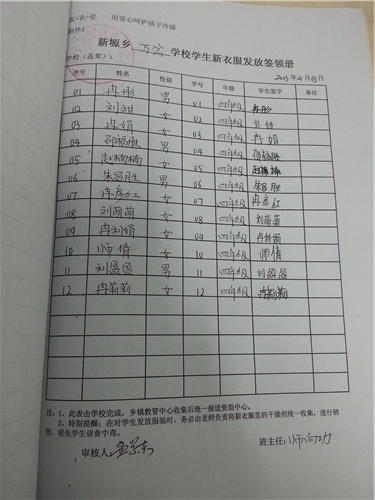 衣+衣=爱 用爱心呵护孩子冷暖
附件4
新塬乡 学校学生新衣服发放签领册
学校(盖章):
序号 姓名 性别 学号 年级 学生签字 备注
01 冉彤 男 01 四年级 冉彤
02 刘甜 女 02 四年级 刘甜
03 冉娟 女 03 四年级 冉娟
04 邵福胜 男 04 四年级 邵福胜
05 赵楠楠 女 05 四年级 赵楠楠
06 朱昌胜 男 06 四年级 朱昌胜
07 冉彦红 女 07 四年级 冉彦红
08 刘萌萌 女 08 四年级 刘萌萌
09 冉利娟 女 09 四年级 冉利娟
10 师倩 女 10 四年级 师倩
11 刘 男 11 四年级 刘
12 冉莉莉 女 12 四年级 冉莉莉
注:1、此表由学校完成,乡镇教管中心收集后统一报送资助中心。
2、特别提醒:在对学生发放服装时,务必由老师负责将新衣服里的干燥剂统一收集,进行销
毁,避免学生误食中毒。
审核人: 班主任:师向功